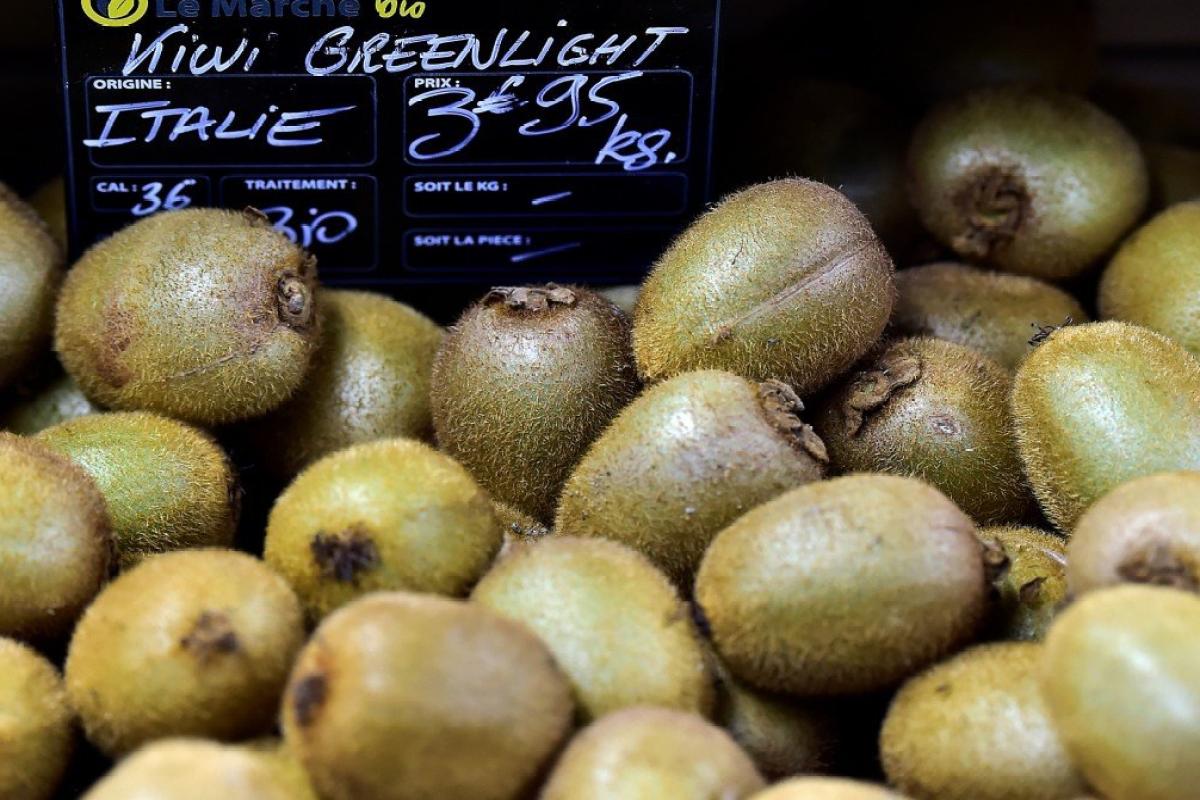 Le Marché bio
KIWI GREENLIGHT
ORIGINE :
ITALIE
PRIX :
3€95
kg.
CAL : 36
TRAITEMENT :
Bio
SOIT LE KG :
—
SOIT LA PIECE :
—